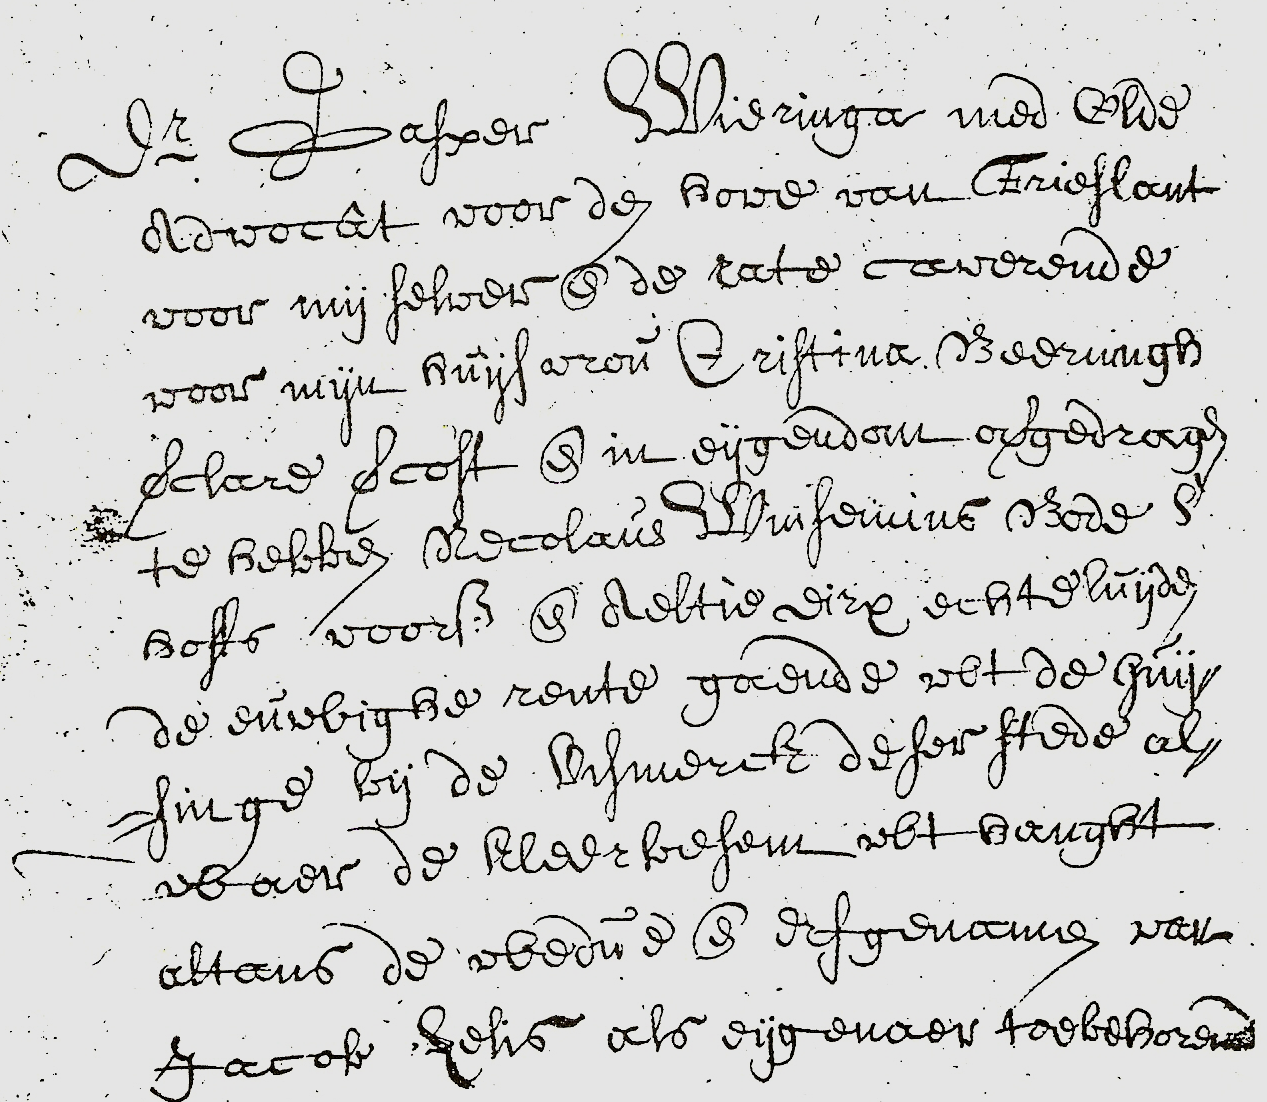 Dr Jasper Wieringa med Elde
Advocaet voor den hove van Frieslant
voor mij selver en de rate caverende
voor mijn huijsvrou Cristina Beerningh
verclare vercoft en in eijgendom opgedragen
te hebben Necolaus Winsemius Bode s'
hoffs voors en Aeltie Dirx echteluijden
de euwighe rente gaende wt de huij
singe bij de Vismerck deser stede al
waer de kleerbesem wt hanght
altans de wedue en erfgenamen van
Jacob Zelis als eijgenaer toebehorend